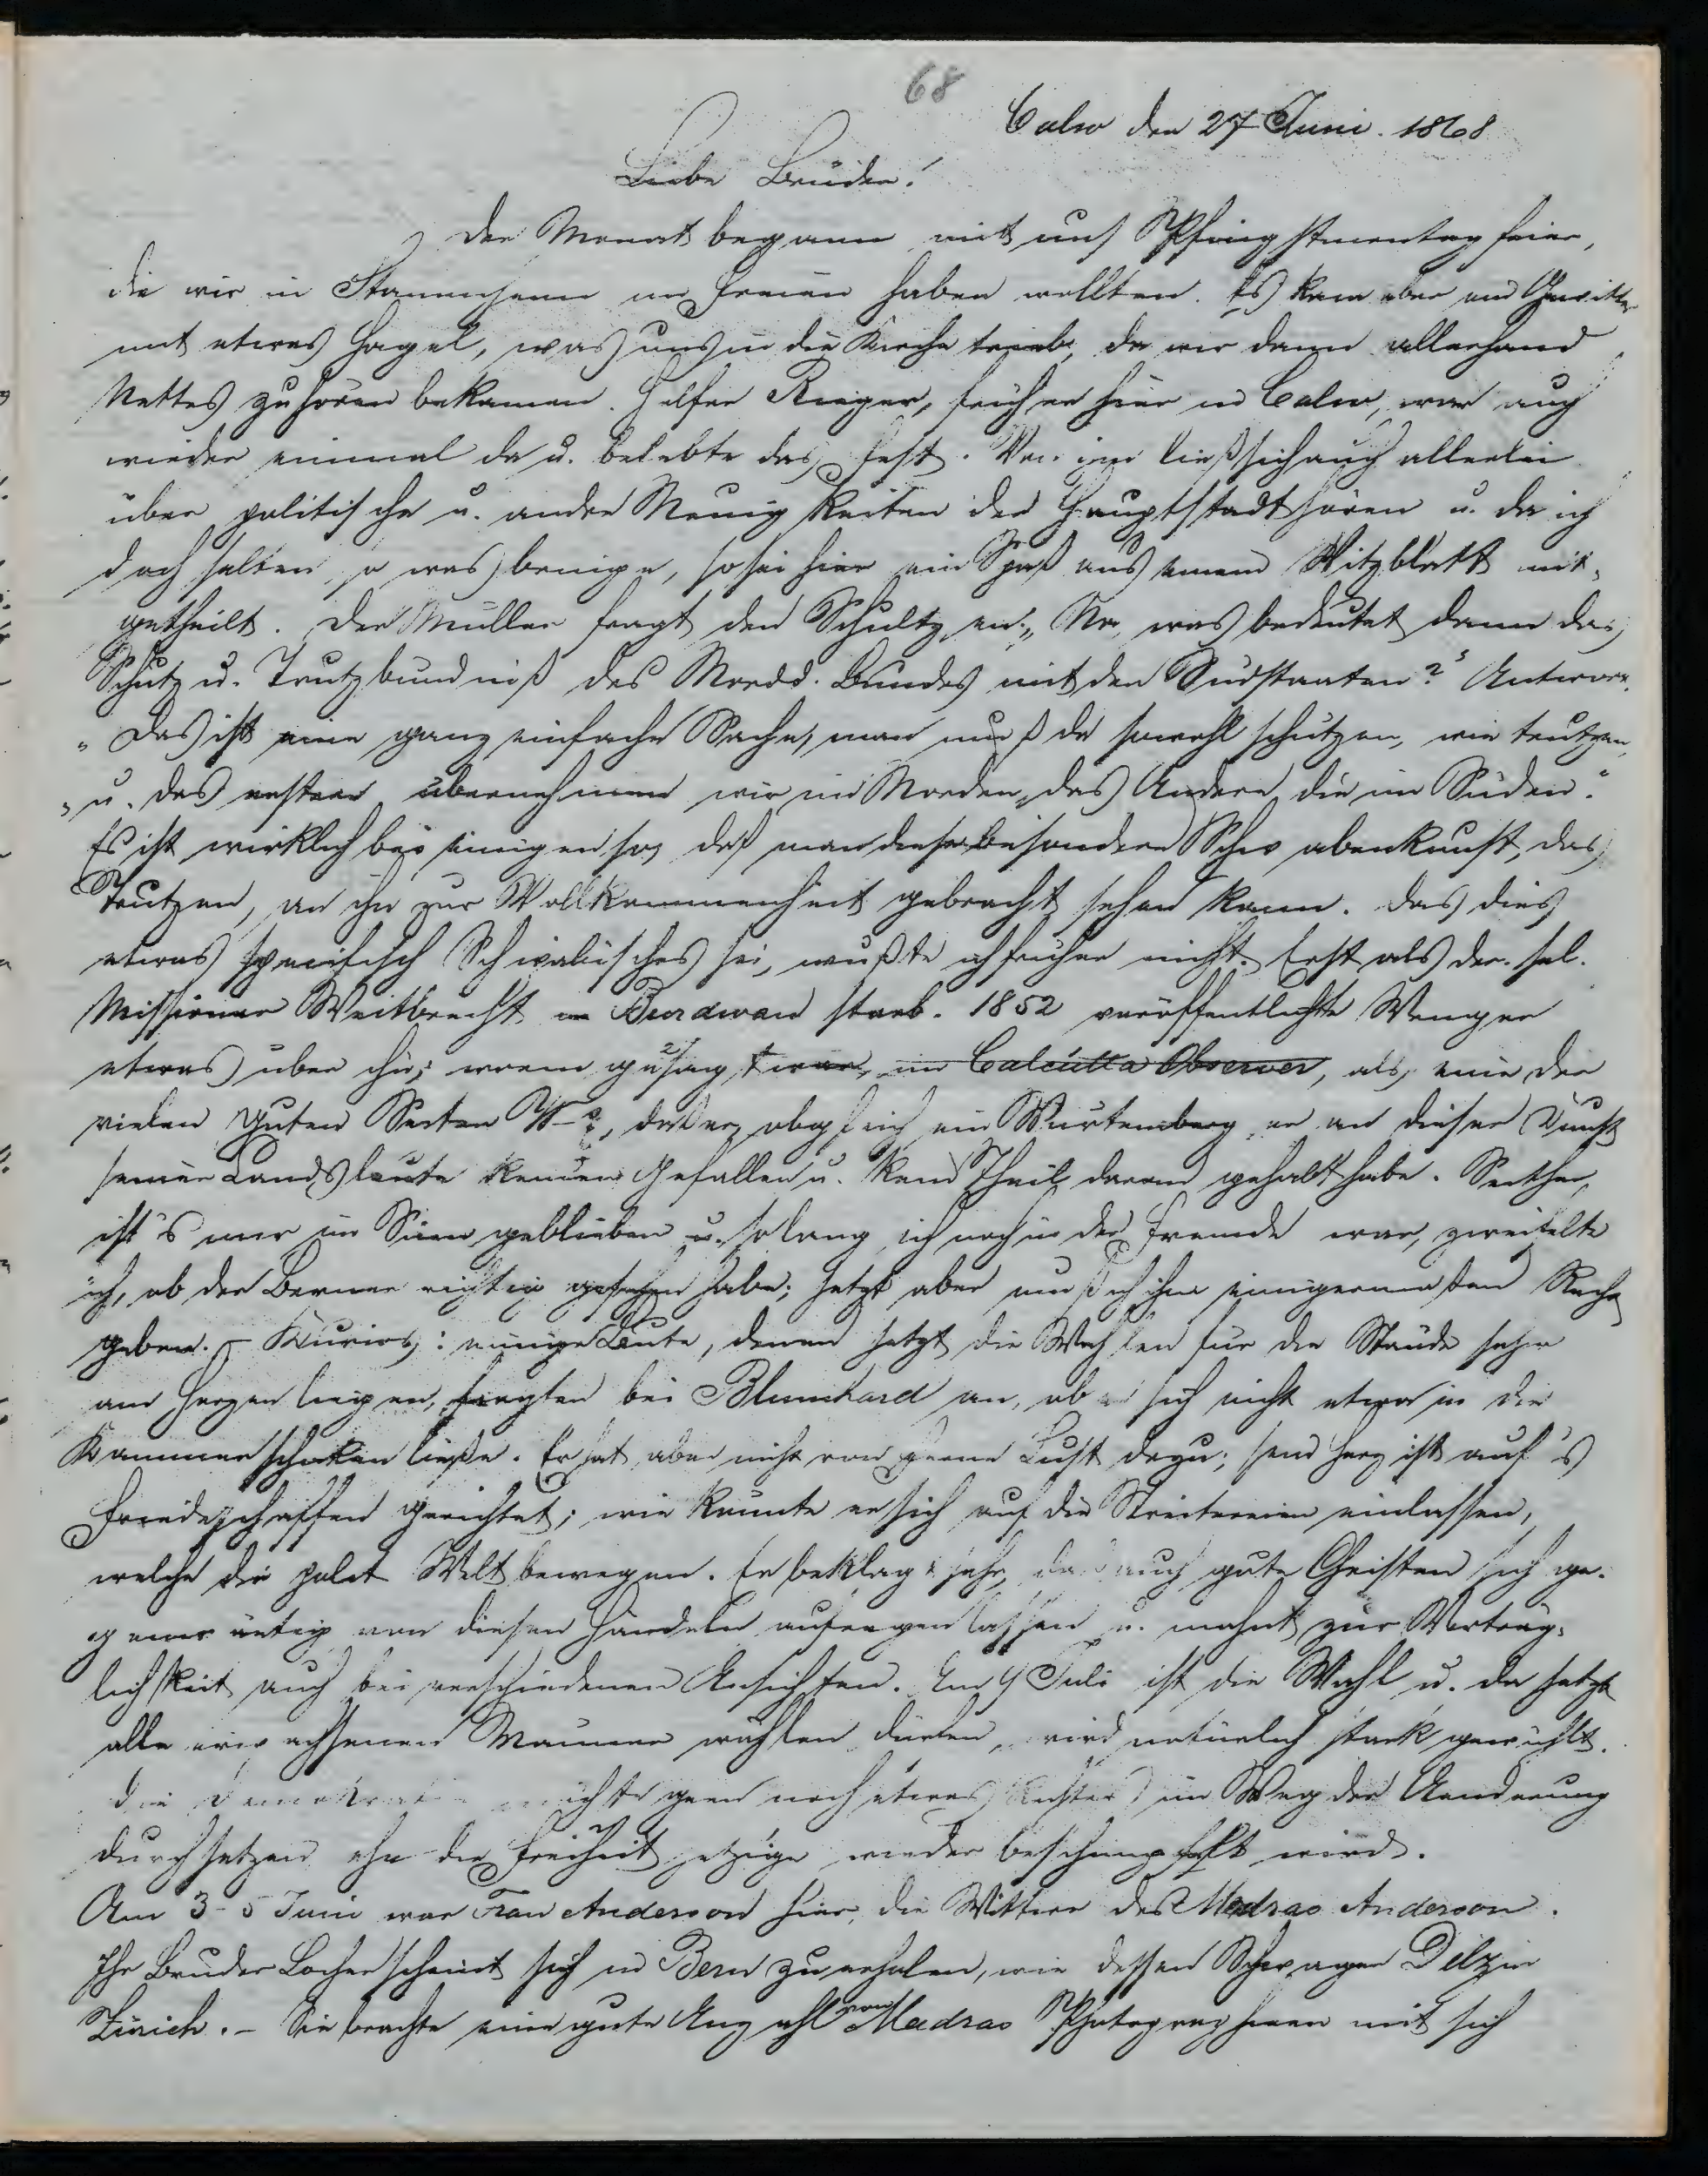 68
Calw den 27 Juni. 1868
Liebe Brüder!
Der Monat begann mit uns Pfingstmontagfeier,
die wir in Stammheim im Freien haben wollten. Es kam aber ein Gewitter
mit etwas Hagel, was uns in die Kirche trieb, da wir dann allerhand
Nettes zu hören bekamen. Helfer Rieger, früher hier in Calw, war auch
wieder einmal da u. belebte das Fest. Von ihm ließ sich auch allerlei
über politische u. andre Neuigkeiten der Hauptstadt hören u. da ich
doch selten so was bringe, so sei hier ein Spaß aus einem Witzblatt mit-
getheilt. Der Müller fragt den Schultzen: „Na, was bedeutet denn das
Schutz u. Trutzbündniß des Nordd. Bundes mit den Südstaaten?" Antwort.
„Das ist eine ganz einfache Sache, man muß da sowohl schützen, wie trutzen,
„u. das erstere übernehmen wir im Norden, das Andere die im Süden."
Es ist wirklich bei einigen so, daß man diese besondere Schwabenkunst, das
Trutzen, an ihr zur Vollkommenheit gebracht sehen kann. Das dies
etwas specifisch Schwäbisches sei, wußte ich früher nicht. Erst als der sel.
Missionar Weitbrecht in Burdwan starb. 1852 veröffentlichte Wenger
etwas über ihn; worin gesagt war, im Calcutta Observer, als eine der
vielen guten Seiten W-s, daß er, obgleich ein Würtemberger an dieser Kunst
seiner Landsleute keinen Gefallen u. kein Theil daran gehabt habe. Seither
ist's mir im Sinn geblieben u. solang ich noch in der Fremde war, zweifelte
ich, ob der Berner richtig gesehen habe; jetzt aber muß ich ihm einigermaßen Recht
geben. – Kurios: einige Leute, denen jetzt die Wahlen für die Stände sehr
am Herzen liegen, fragten bei Blumhard an, ob er sich nicht etwa in die
Kammer schicken ließe. Er hat aber nicht von ferne Lust dazu; sein Herz ist auf's
Friedeschaffen gerichtet; wie könnte er sich auf die Streitereien einlassen,
welche die polit Welt bewegen. Er beklagt sehr, daß auch gute Christen sich ge-
genseitig von diesen Händeln aufregen lassen u. mahnt zur Verträg-
lichkeit auch bei verschiedenen Ansichten. Am 9 Juli ist die Wahl u. da jetzt
alle erwachsenen Männer wählen dürfen, wird natürlich stark gewühlt.
Die Demokratie möchte gern noch etwas Rechtes im Weg der Aenderung
durchsetzen ehe die Freiheit jetzige wieder beschimpfft wird.
Am 3-5 Juni war Frau Anderson hier, die Wittwe des Madras Anderson.
Ihr Bruder Locher scheint sich in Bern zu erholen, wie dessen Schwager Pelz in
Zürich. – Sie brachte eine gute Anzahl von Madras Photographieen mit sich